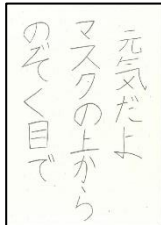 元気だよ
マスクの上から
のぞく目で